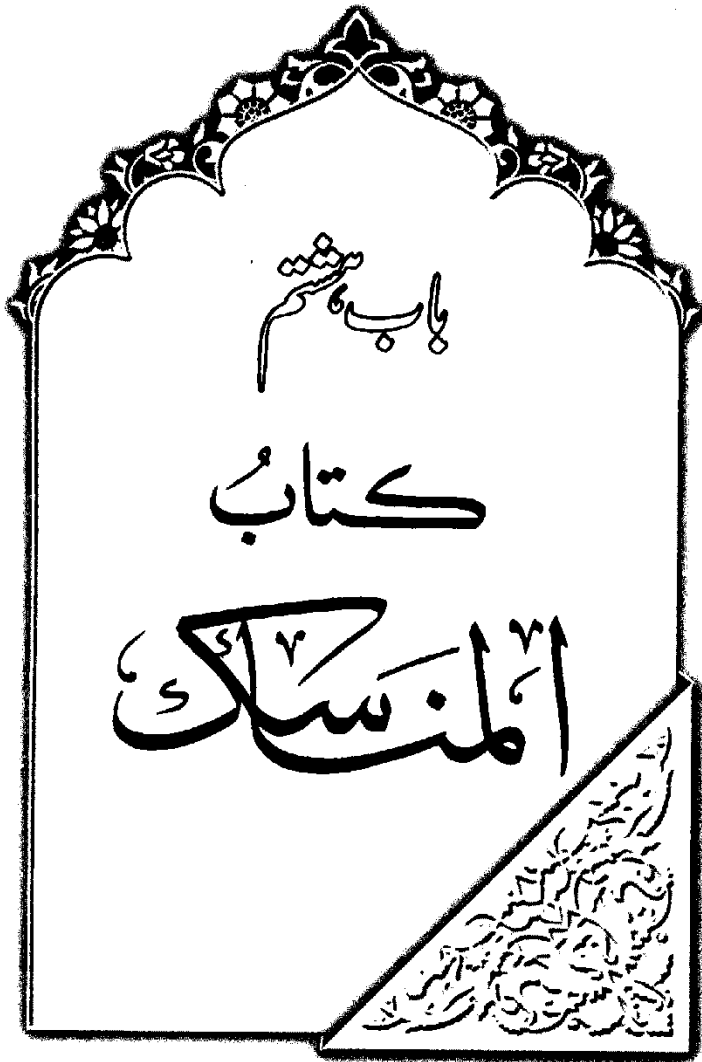 باب ہشتم
كتابُ
المناسك